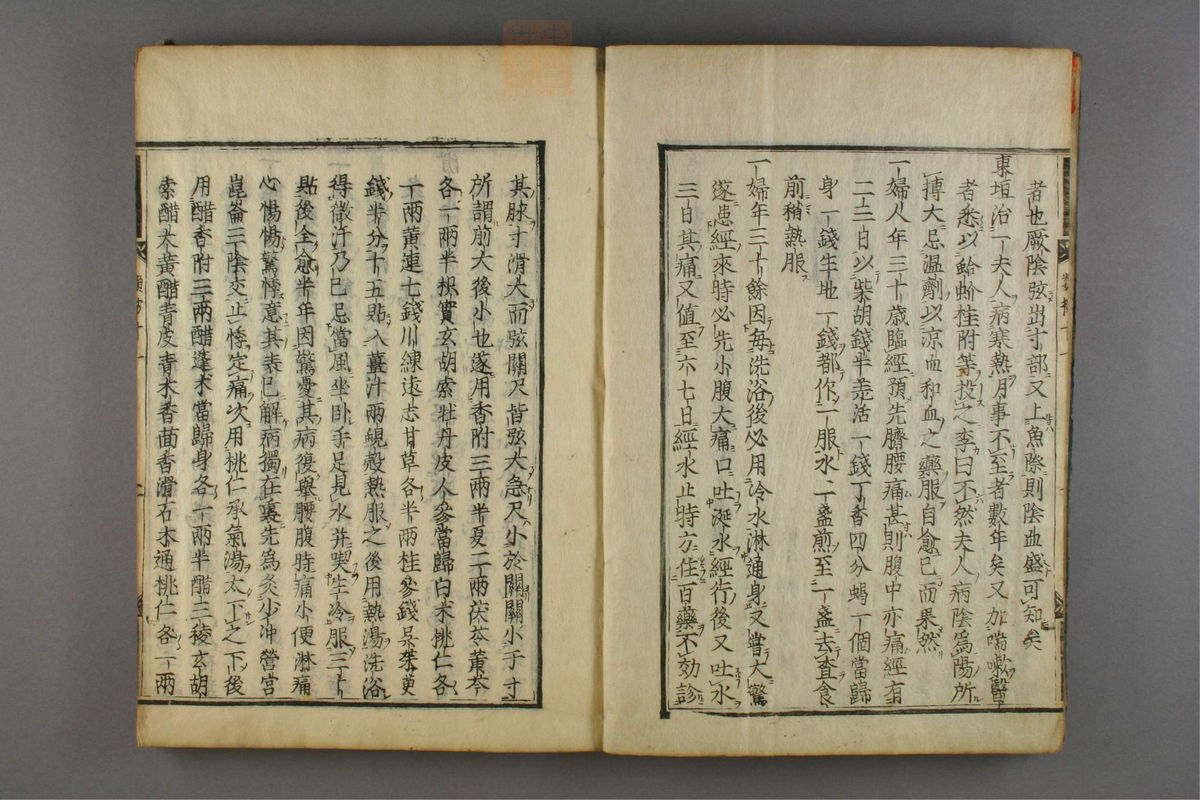 者也厥陰弦出寸部又上魚際則陰血盛可知矣
東垣治一夫人病寒熱月事不至者數年矣又加喘嗽醫
者悉以蛤蚧桂附等投之李曰不然夫人病陰爲陽所
搏大忌温劑以凉血和血之藥服自愈已而果然
一婦人年三十歲臨經預先臍腰痛甚則腹中亦痛經有
二三日以柴胡錢半羗活一錢丁香四分蝎一個當歸
身一錢生地一錢都作一服水二盞煎至一盞去査食
前稍熱服
一婦年三十餘因每洗浴後必用冷水淋通身又嘗大驚
遂患經來時必先小腹大痛口吐涎水經行後又吐水
三日其痛又値至六七日經水止時方住百藥不効診
其脉寸滑大而弦關尺皆弦大急尺小於關關小于寸
所謂前大後小也遂用香附三兩半夏二兩茯苓黄芩
各一兩半枳實玄胡索牡丹皮人參當歸白朮桃仁各
一兩黄連七錢川練遠志甘草各半兩桂參錢吳茱萸
錢半分十五貼入薑汁兩蜆殻熱服之後用熱湯洗浴
得微汗乃已忌當風坐卧手足見水并喫生冷服三十
貼後全愈半年因驚憂其病復舉腰腹時痛小便淋痛
心惕惕驚悸意其表已解病獨在裏先爲灸少冲勞宮
崑崙三陰交止悸定痛次用桃仁承氣湯太下之下後
用醋香附三兩醋蓬朮當歸身各一兩半醋三稜玄胡
索醋大黄醋青皮青木香茴香滑石木通桃仁各一兩